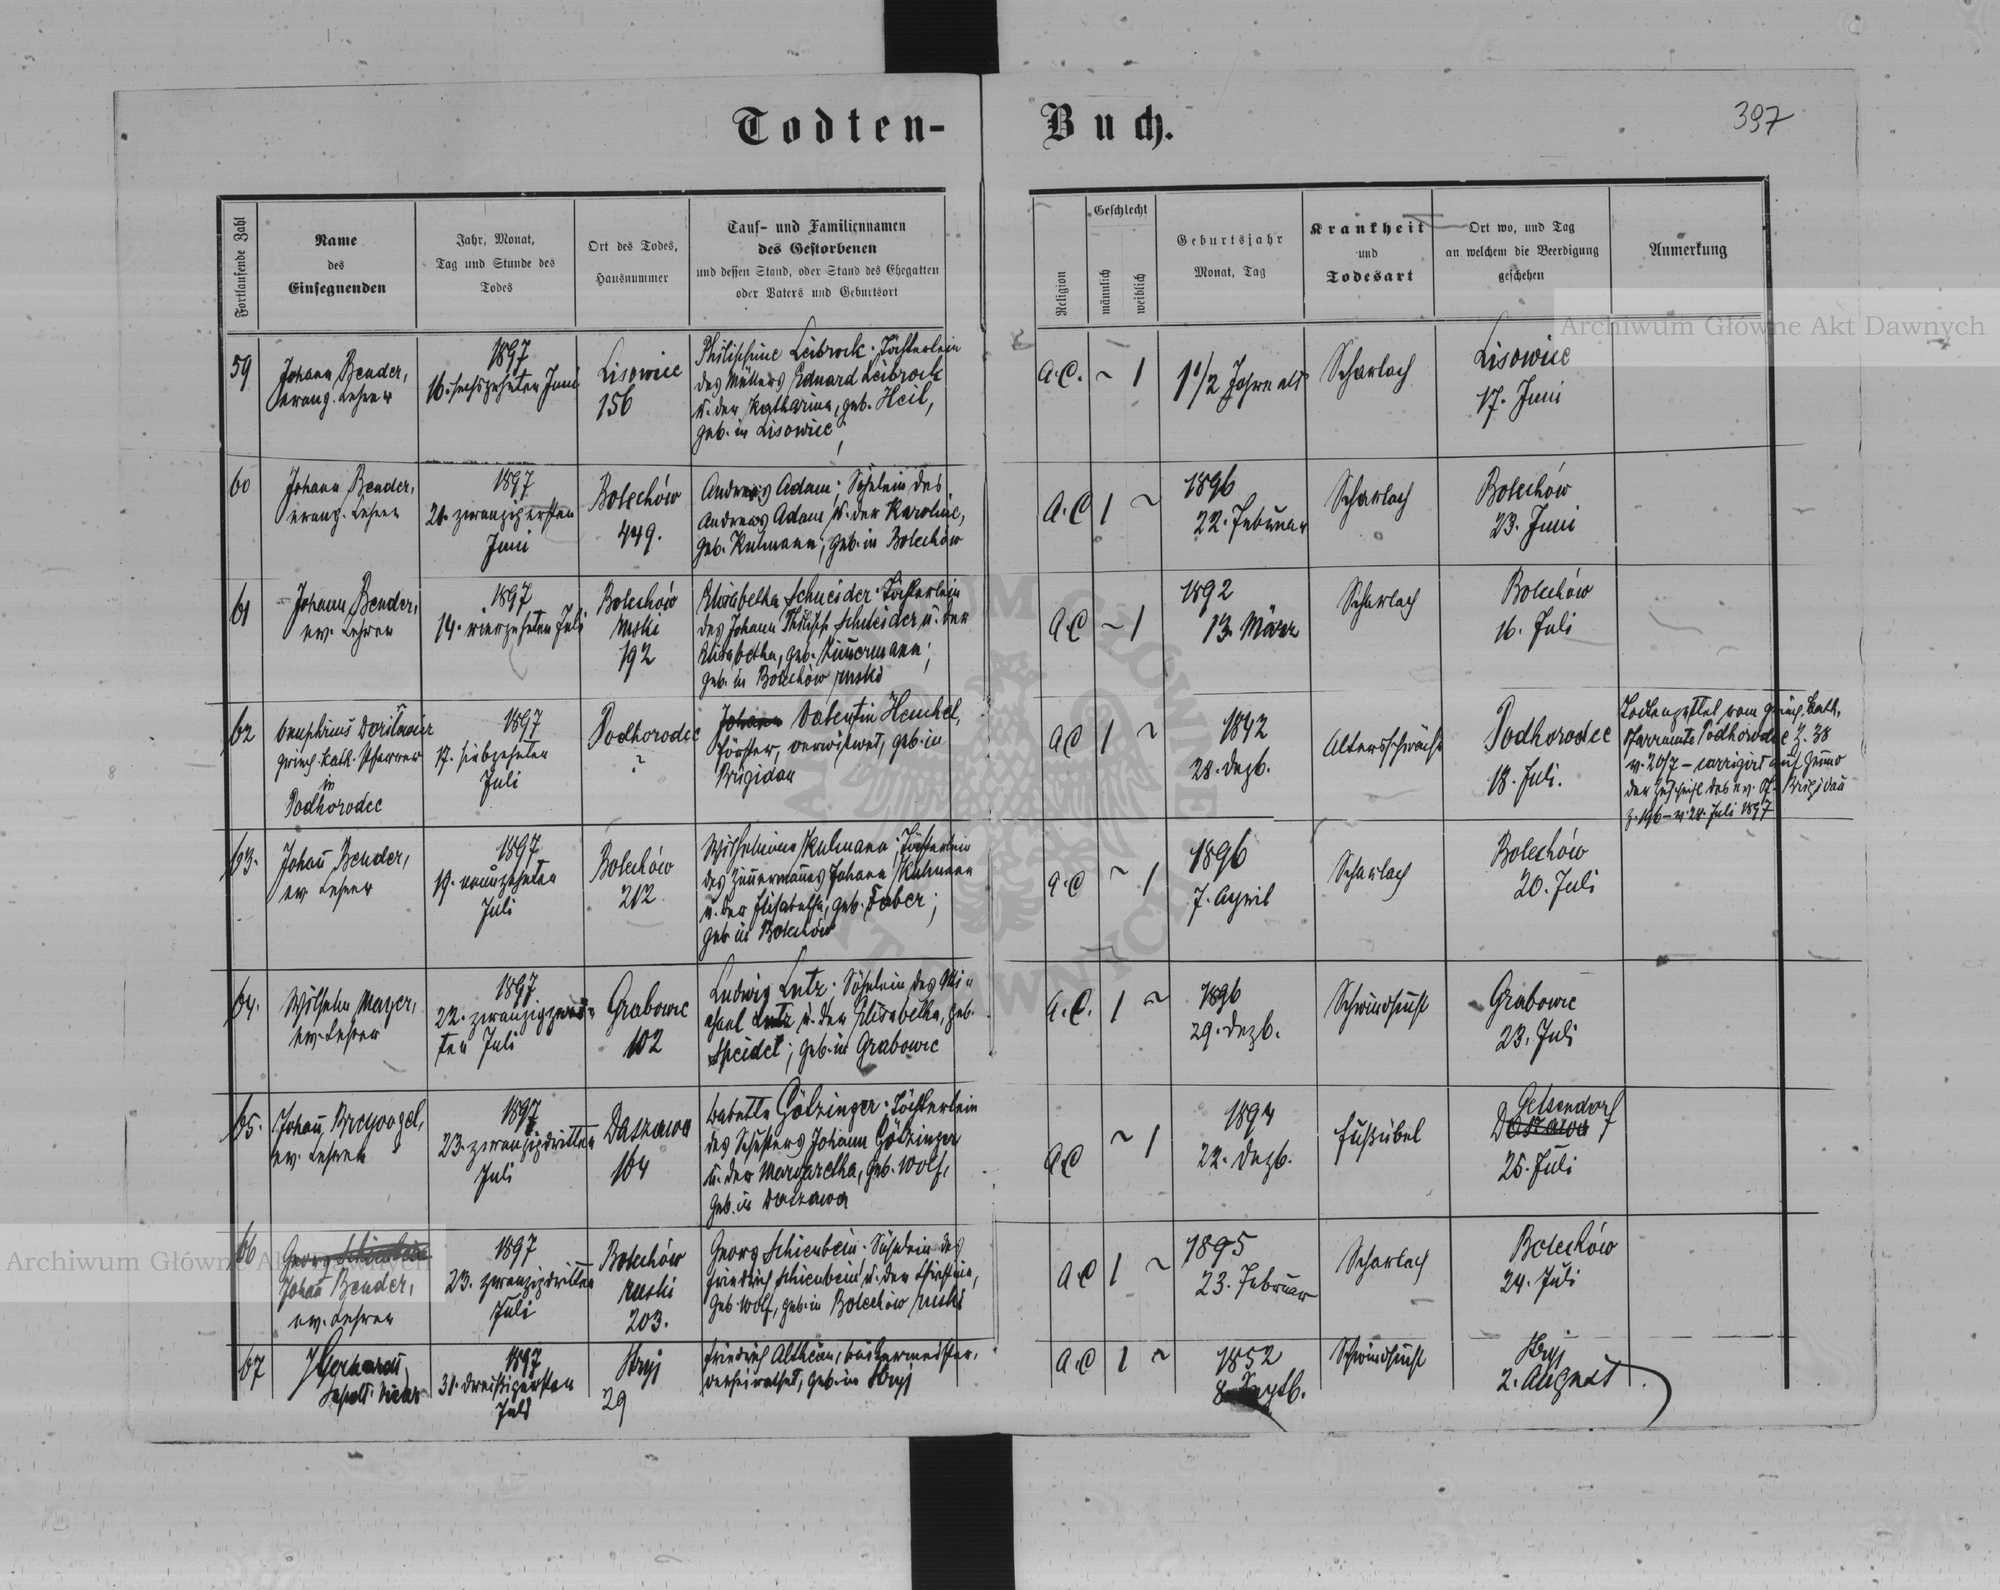 Todten-
Buch.
397
Fortlaufende Zahl
Name
des
Einsegnenden
Jahr, Monat,
Tag und Stunde des
Todes
Ort des Todes,
Hausnummer
Tauf- und Familiennamen
des Gestorbenen
und dessen Stand, oder Stand des Ehegatten
oder Vaters und Geburtsort
Religion
Geschlecht
männlich
weiblich
Geburtsjahr
Monat, Tag
Krankheit
und
Todesart
Ort wo, und Tag
an welchem die Beerdigung
geschehen
Anmerkung
Archiwum Główne Akt Dawnych
59
Johann Bender,
evang. Lehrer
1897
16. sechszehnten Juni
Lisowice
156
Philippine Leibrock. Töchterlein
des Müllers Eduard Leibrock
u. der Katharina, geb. Heil,
geb. in Lisowice;
A.C. ~ 1
1 1/2 Jahre alt
Scharlach
Lisowice
17. Juni
60
Johann Bender,
evang. Lehrer
1897
21. zwanzigersten
Juni
Bolechów
449.
Andreas Adam; Söhnlein des
Andreas Adam u. der Karoline,
geb. Kulmann; geb. in Bolechów
A.C 1 ~
1896
22. Februar
Scharlach
Bolechów
23. Juni
61
Johann Bender,
ev. Lehrer
1897
14. vierzehnten Juli
Bolechów
ruski
192
Elisabetha Schneider. Töchterlein
des Johann Philipp Schneider u. der
Elisabetha, geb. Zimmermann;
geb. in Bolechów ruski
A.C ~ 1
1892
13. März
Scharlach
Bolechów
16. Juli
62
griech. kath. Pfarrer
in
Podhorodec
1897
17. siebzehnten
Juli
Podhorodec
?
Johann Valentin Henkel,
Förster, verwitwet, geb. in
Brigidau
A.C 1 ~
1842
28. Dezb.
Altersschwäche
Podhorodec
18. Juli.
Todtenzettel vom griech. kath.
Pfarramte Podhorodec Z. 38
v. 20/7 – corrigirt auf Grund
der Zuschrift des ev. Brigidau
Z. 196 – v. 28. Juli 1897
63.
Johann Bender,
ev. Lehrer
1897
19. neunzehnten
Juli
Bolechów
212
Wilhelmine Kulmann; Töchterlein
des Zimmermannes Johann Kulmann
u. der Elisabetha, geb. Faber;
geb. in Bolechów
A.C ~ 1
1896
7. April
Scharlach
Bolechów
20. Juli
64.
Wilhelm Mayer,
ev. Lehrer
1897
22. zwanzigzwei-
ten Juli
Grabowce
102
Ludwig Lutz. Söhnlein des Mi-
chael Lutz u. der Elisabetha, geb.
Speidel; geb. in Grabowce
A.C. 1 ~
1896
29. Dezb.
Schwindsucht
Grabowce
23. Juli
65.
Johann Breyvogel,
ev. Lehrer
1897
23. zwanzigdritten
Juli
Daszawa
104
Babette Gölzinger. Töchterlein
des Schusters Johann Gölzinger
u. der Margaretha, geb. Wolf,
geb. in Daszawa
A.C ~ 1
1894
22. Dezb.
Fußübel
Gelsendorf
Daszawa
25. Juli
66
Georg Schienbein
Johann Bender,
ev. Lehrer
1897
23. zwanzigdritten
Juli
Bolechów
ruski
203.
Georg Schienbein. Söhnlein des
Friedrich Schienbein u. der Christine,
geb. Wolf, geb. in Bolechów ruski
A.C 1 ~
1895
23. Februar
Scharlach
Bolechów
24. Juli
Archiwum Główne Akt Dawnych
67
1897
31. dreißigersten
Juli
Stryj
29
verheirathet, geb. in Stryj
A.C 1 ~
1852
8. Septb.
Schwindsucht
Stryj
2. August